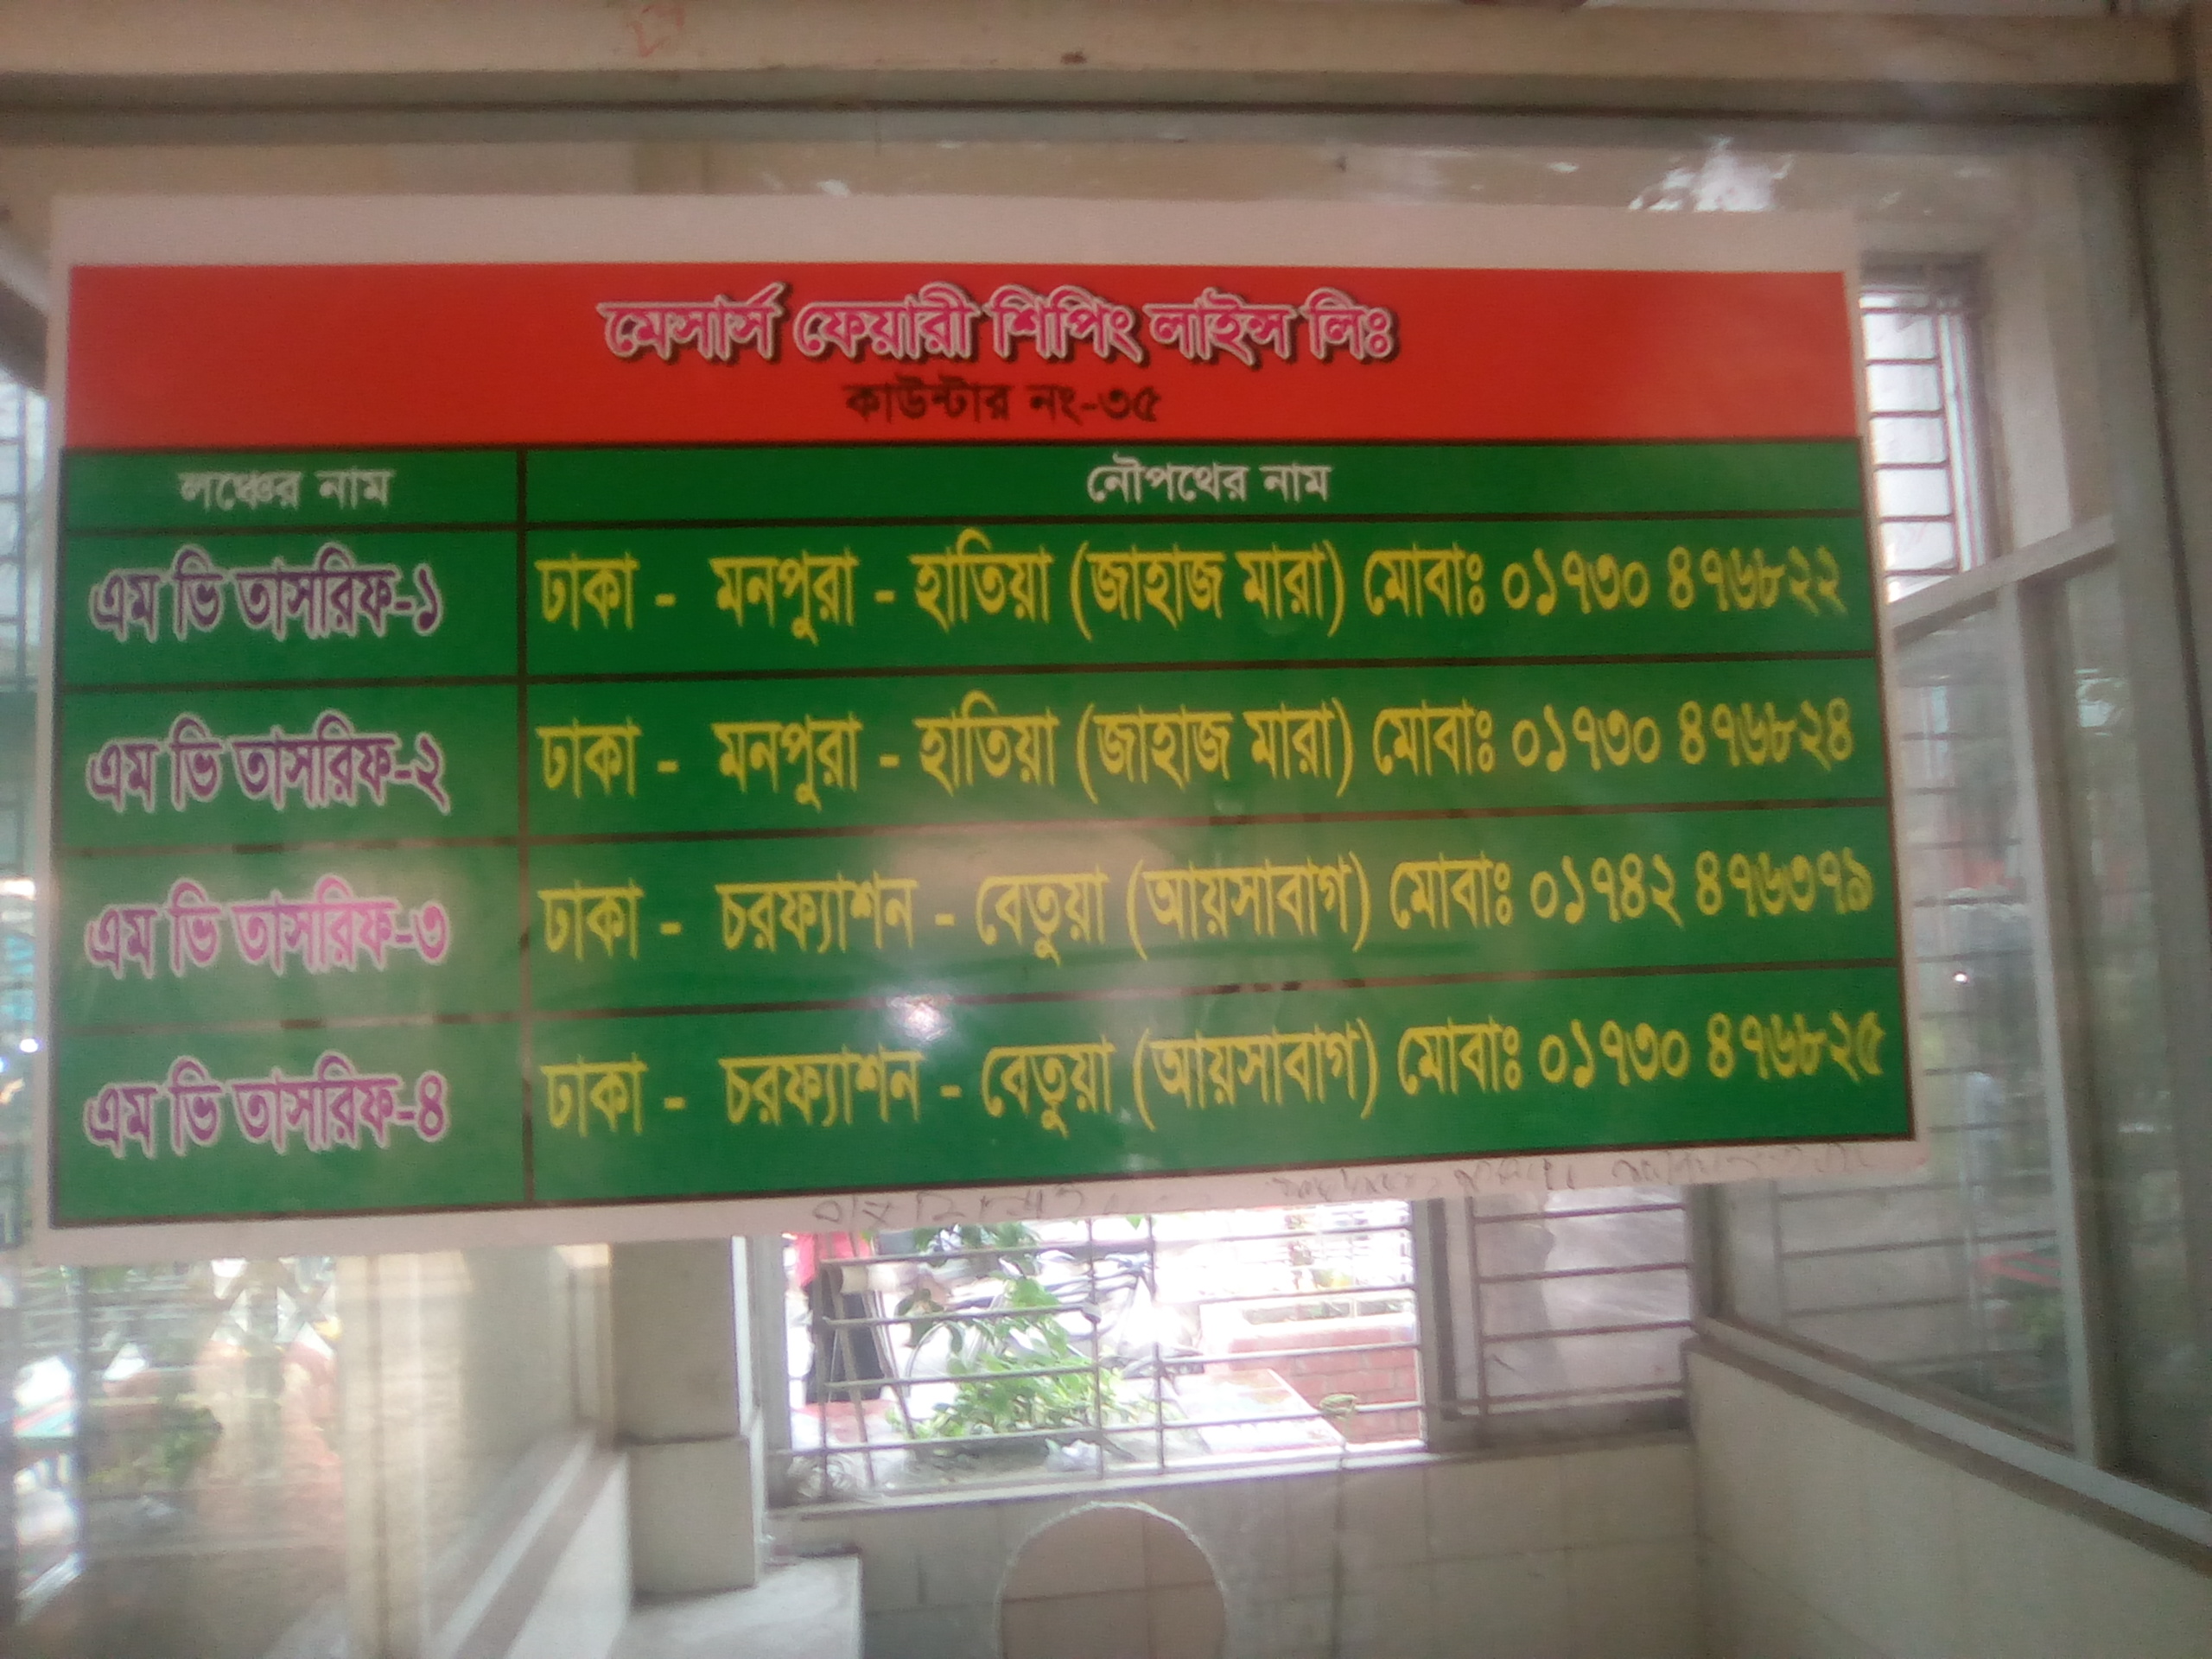 মেসার্স ফেয়ারী শিপিং লাইন্স লিঃ
কাউন্টার নং-৩৫
লঞ্চের নাম নৌপথের নাম
এম ভি তাসরিফ-১ ঢাকা - মনপুরা - হাতিয়া (জাহাজ মারা) মোবাঃ ০১৭৩০ ৪৭৬৮২২
এম ভি তাসরিফ-২ ঢাকা - মনপুরা - হাতিয়া (জাহাজ মারা) মোবাঃ ০১৭৩০ ৪৭৬৮২৪
এম ভি তাসরিফ-৩ ঢাকা - চরফ্যাশন - বেতুয়া (আয়সাবাগ) মোবাঃ ০১৭৪২ ৪৭৬৩৭৯
এম ভি তাসরিফ-৪ ঢাকা - চরফ্যাশন - বেতুয়া (আয়সাবাগ) মোবাঃ ০১৭৩০ ৪৭৬৮২৫